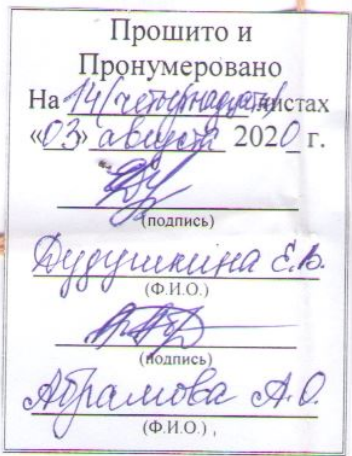 Прошито и
Пронумеровано
На 14 (четырнадцати) листах
«03» августа 2020 г.
(подпись)
Дудушкина Е.В.
(Ф.И.О.)
(подпись)
Абрамова А.О.
(Ф.И.О.)